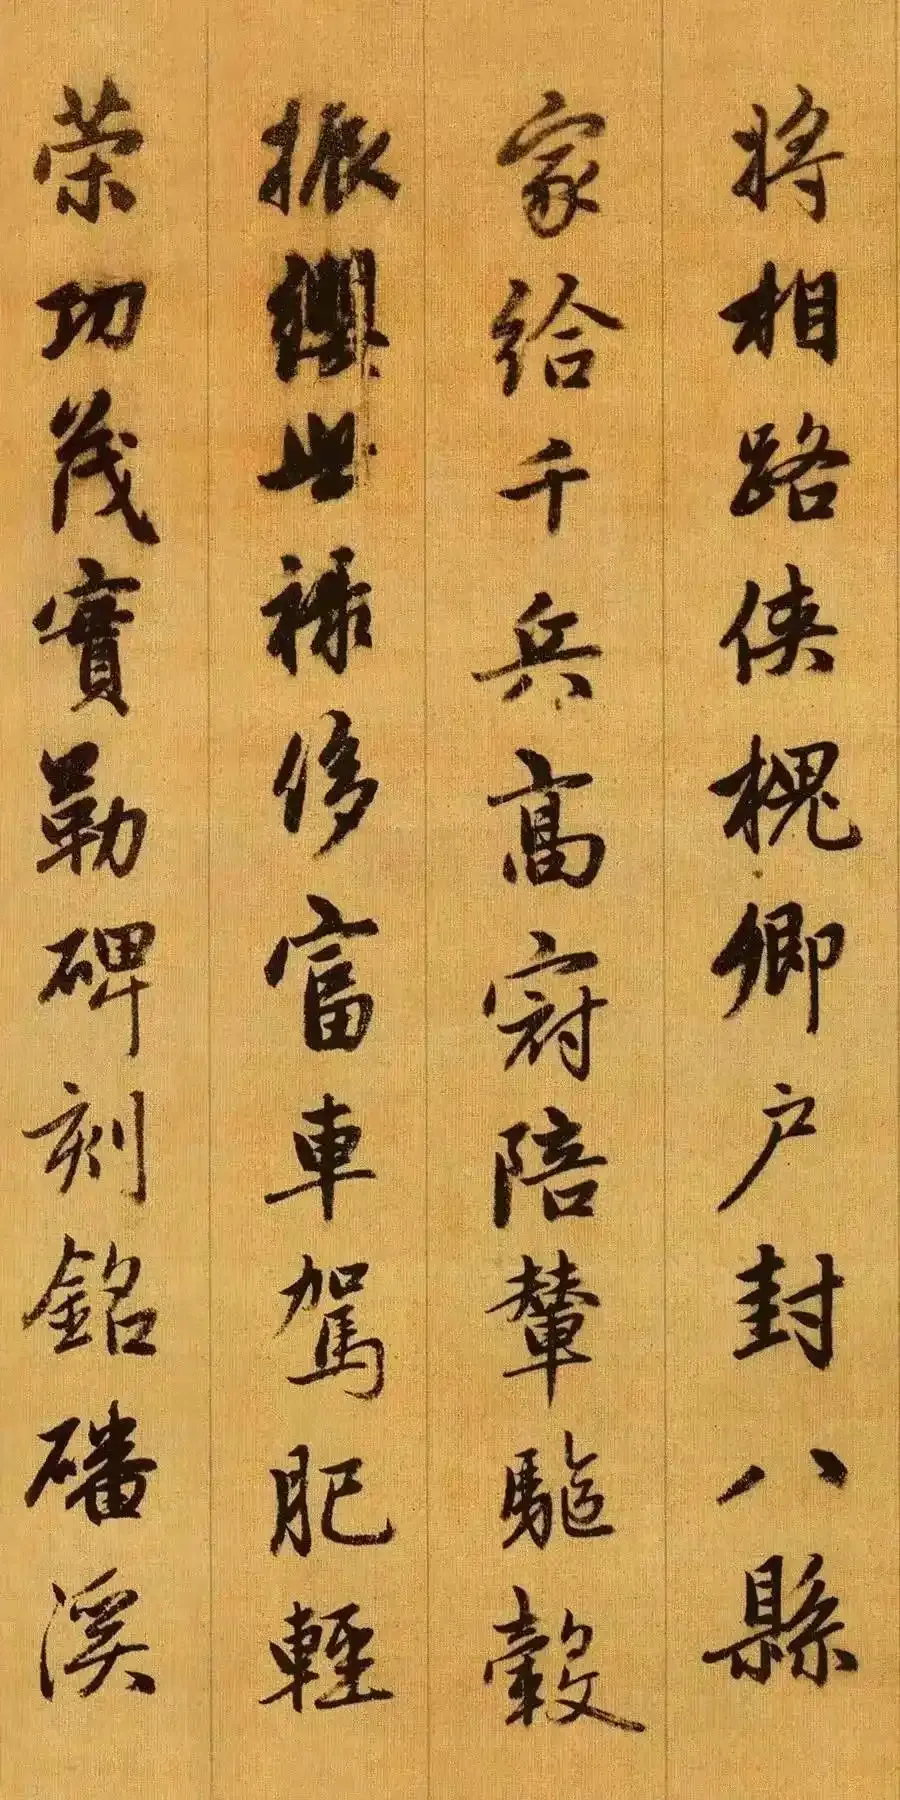 將相路俠槐卿户封八縣
家給千兵高冠陪輦驅轂
振纓世禄侈富車駕肥輕
策功茂實勒碑刻銘磻溪